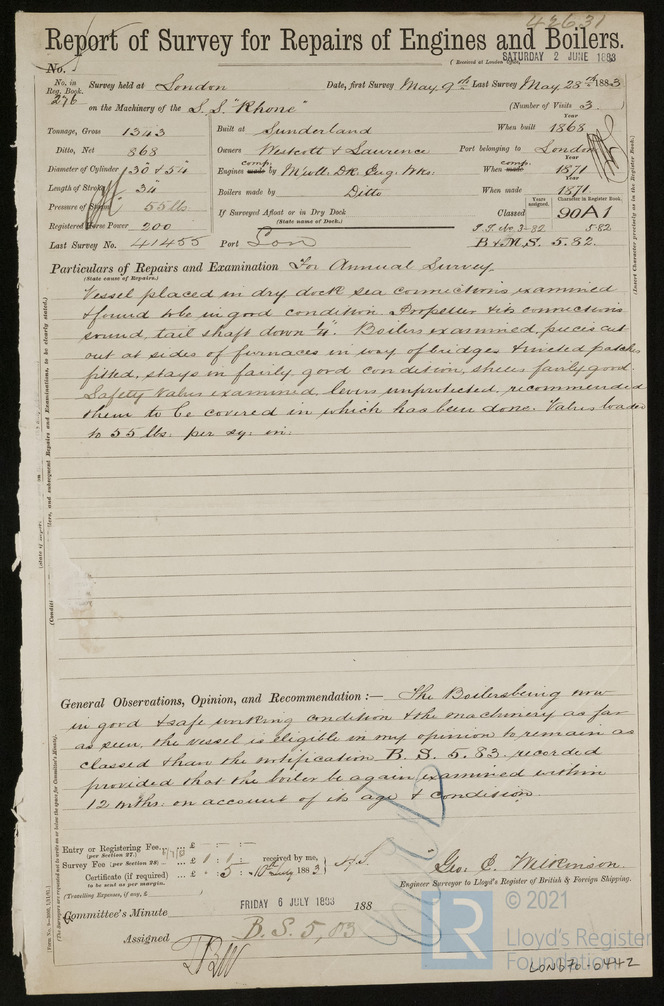 42631
Report of Survey for Repairs of Engines and Boilers.
No.
(Received at London Office, SATURDAY 2 JUNE 1883
No. in Reg. Book. 276 Survey held at London Date, first Survey May 9th Last Survey May 28th 1883
on the Machinery of the S.S. "Rhone" (Number of Visits 3 )
Tonnage, Gross 1343 Built at Sunderland When built Year 1868
Ditto, Net 868 Owners Westcott & Laurence Port belonging to London
Diameter of Cylinder 30 & 54 Engines comp. made by M'wll. Dk. Eng. Wks. When comp. made Year 1871
Length of Stroke 34 Boilers made by Ditto When made Year 1871
Pressure of Steam 55 lbs. If Surveyed Afloat or in Dry Dock Classed Years assigned. Character in Register Book. 90A1
(State name of Dock.)
Registered Horse Power 200 3-82 5.82
Last Survey No. 41455 Port Lon B&M.S. 5.82.
(Insert Character precisely as in the Register Book.)
Particulars of Repairs and Examination For Annual Survey
(State cause of Repairs.)
Vessel placed in dry dock sea connections examined
& found to be in good condition Propeller & its connections
sound, tail shaft down 1/4". Boilers examined, pieces cut
out at sides of furnaces in way of bridges & riveted patches
fitted, stays in fairly good condition, shells fairly good
Safety Valves examined, levers unprotected, recommended
them to be covered in which has been done. Valves loaded
to 55 lbs. per sq. in.
General Observations, Opinion, and Recommendation :— The Boilers being now
in good & safe working condition & the machinery as far
as seen, the vessel is eligible in my opinion to remain as
classed & have the notification B.S. 5.83. recorded
provided that the boiler be again examined within
12 mths. on account of its age & condition.
Entry or Registering Fee... £ - : - : -
(per Section 27.)
Survey Fee (per Section 28) ... £ 1 : 1 : received by me,
Certificate (if required) ... £ : 5 : 10th July 1883
to be sent as per margin.
(Travelling Expenses, if any, £
Geo. E. Wilkinson
Engineer Surveyor to Lloyd's Register of British & Foreign Shipping.
Committee's Minute FRIDAY 6 JULY 1883 188
Assigned B.S. 5,83
TBW
LR © 2021
Lloyd's Register
Foundation
LON670-0442